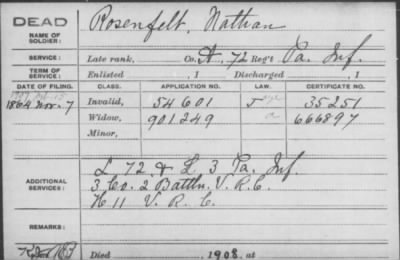 DEAD
NAME OF SOLDIER: Rosenfelt, Nathan
SERVICE: Late rank, Co. A, 72 Reg't Pa. Inf.
TERM OF SERVICE: Enlisted , 1 Discharged , 1
DATE OF FILING. CLASS. APPLICATION NO. LAW. CERTIFICATE NO.
1864 Nov. 7 Invalid, 54601 35251
Widow, 901249 666897
Minor,
ADDITIONAL SERVICES: L 72 & L 3 Pa. Inf.
3 Co. 2 Battln. V. R. C.
H 11 V. R. C.
REMARKS:
Died 1908, at